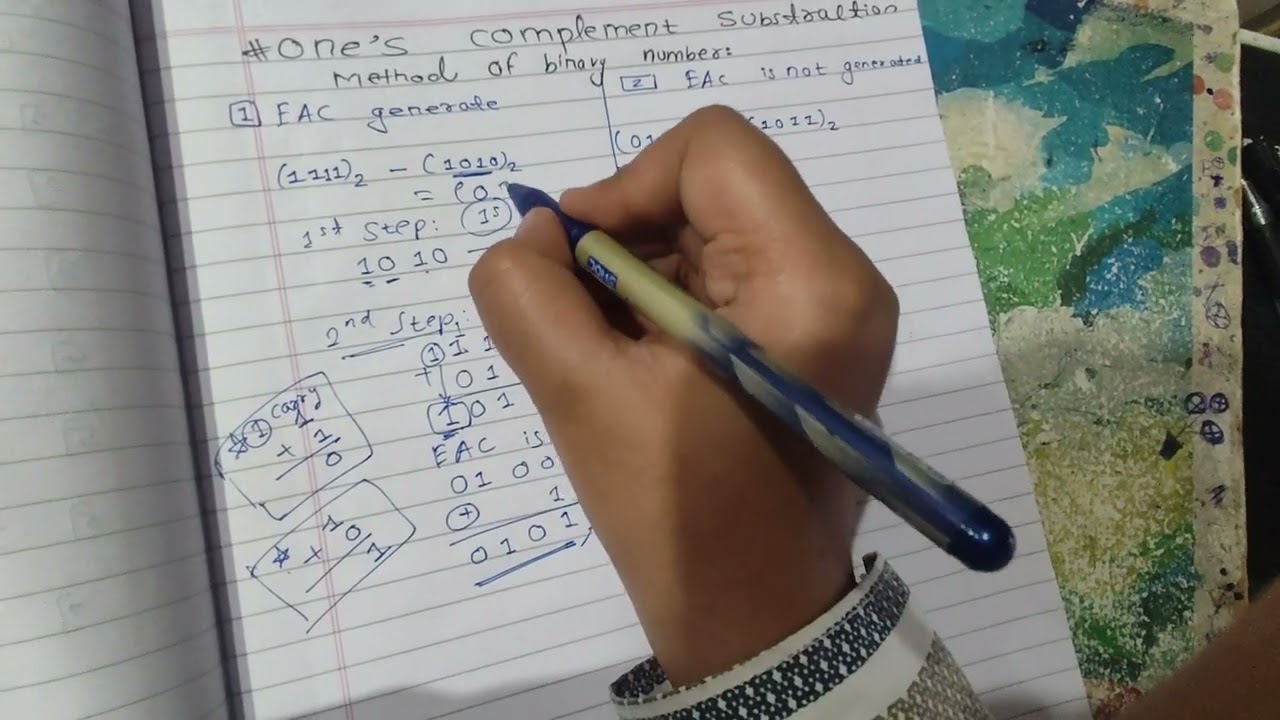 # One's complement substraction
Method of binary number:
[1] EAC generate
(1111)₂ - (1010)₂
= (0
1st step: 1s
10 10
2nd step:
1 1 1
+ 0 1
1 0 1
EAC is
01 00
+ 1
0 1 0 1
* 1 carry
1
× 1
0
* 1
× 0
1
[2] EAC is not generated
(01
(1011)₂